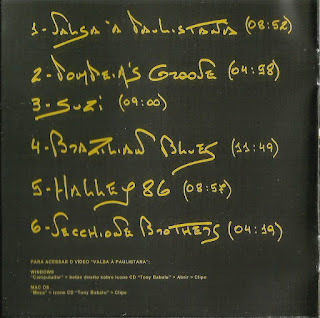 1- Valsa à Paulistana (08:52)
2- Pompeia's Groove (04:58)
3- Suzi (09:00)
4- Brazilian Blues (11:49)
5- Halley 86 (08:57)
6- Secchione Brothers (04:19)
PARA ACESSAR O VÍDEO "VALSA À PAULISTANA":
WINDOWS
"Computador" > botão direito sobre ícone CD "Tony Babalu" > Abrir > Clipe
MAC OS
"Mesa" > ícone CD "Tony Babalu" > Clipe